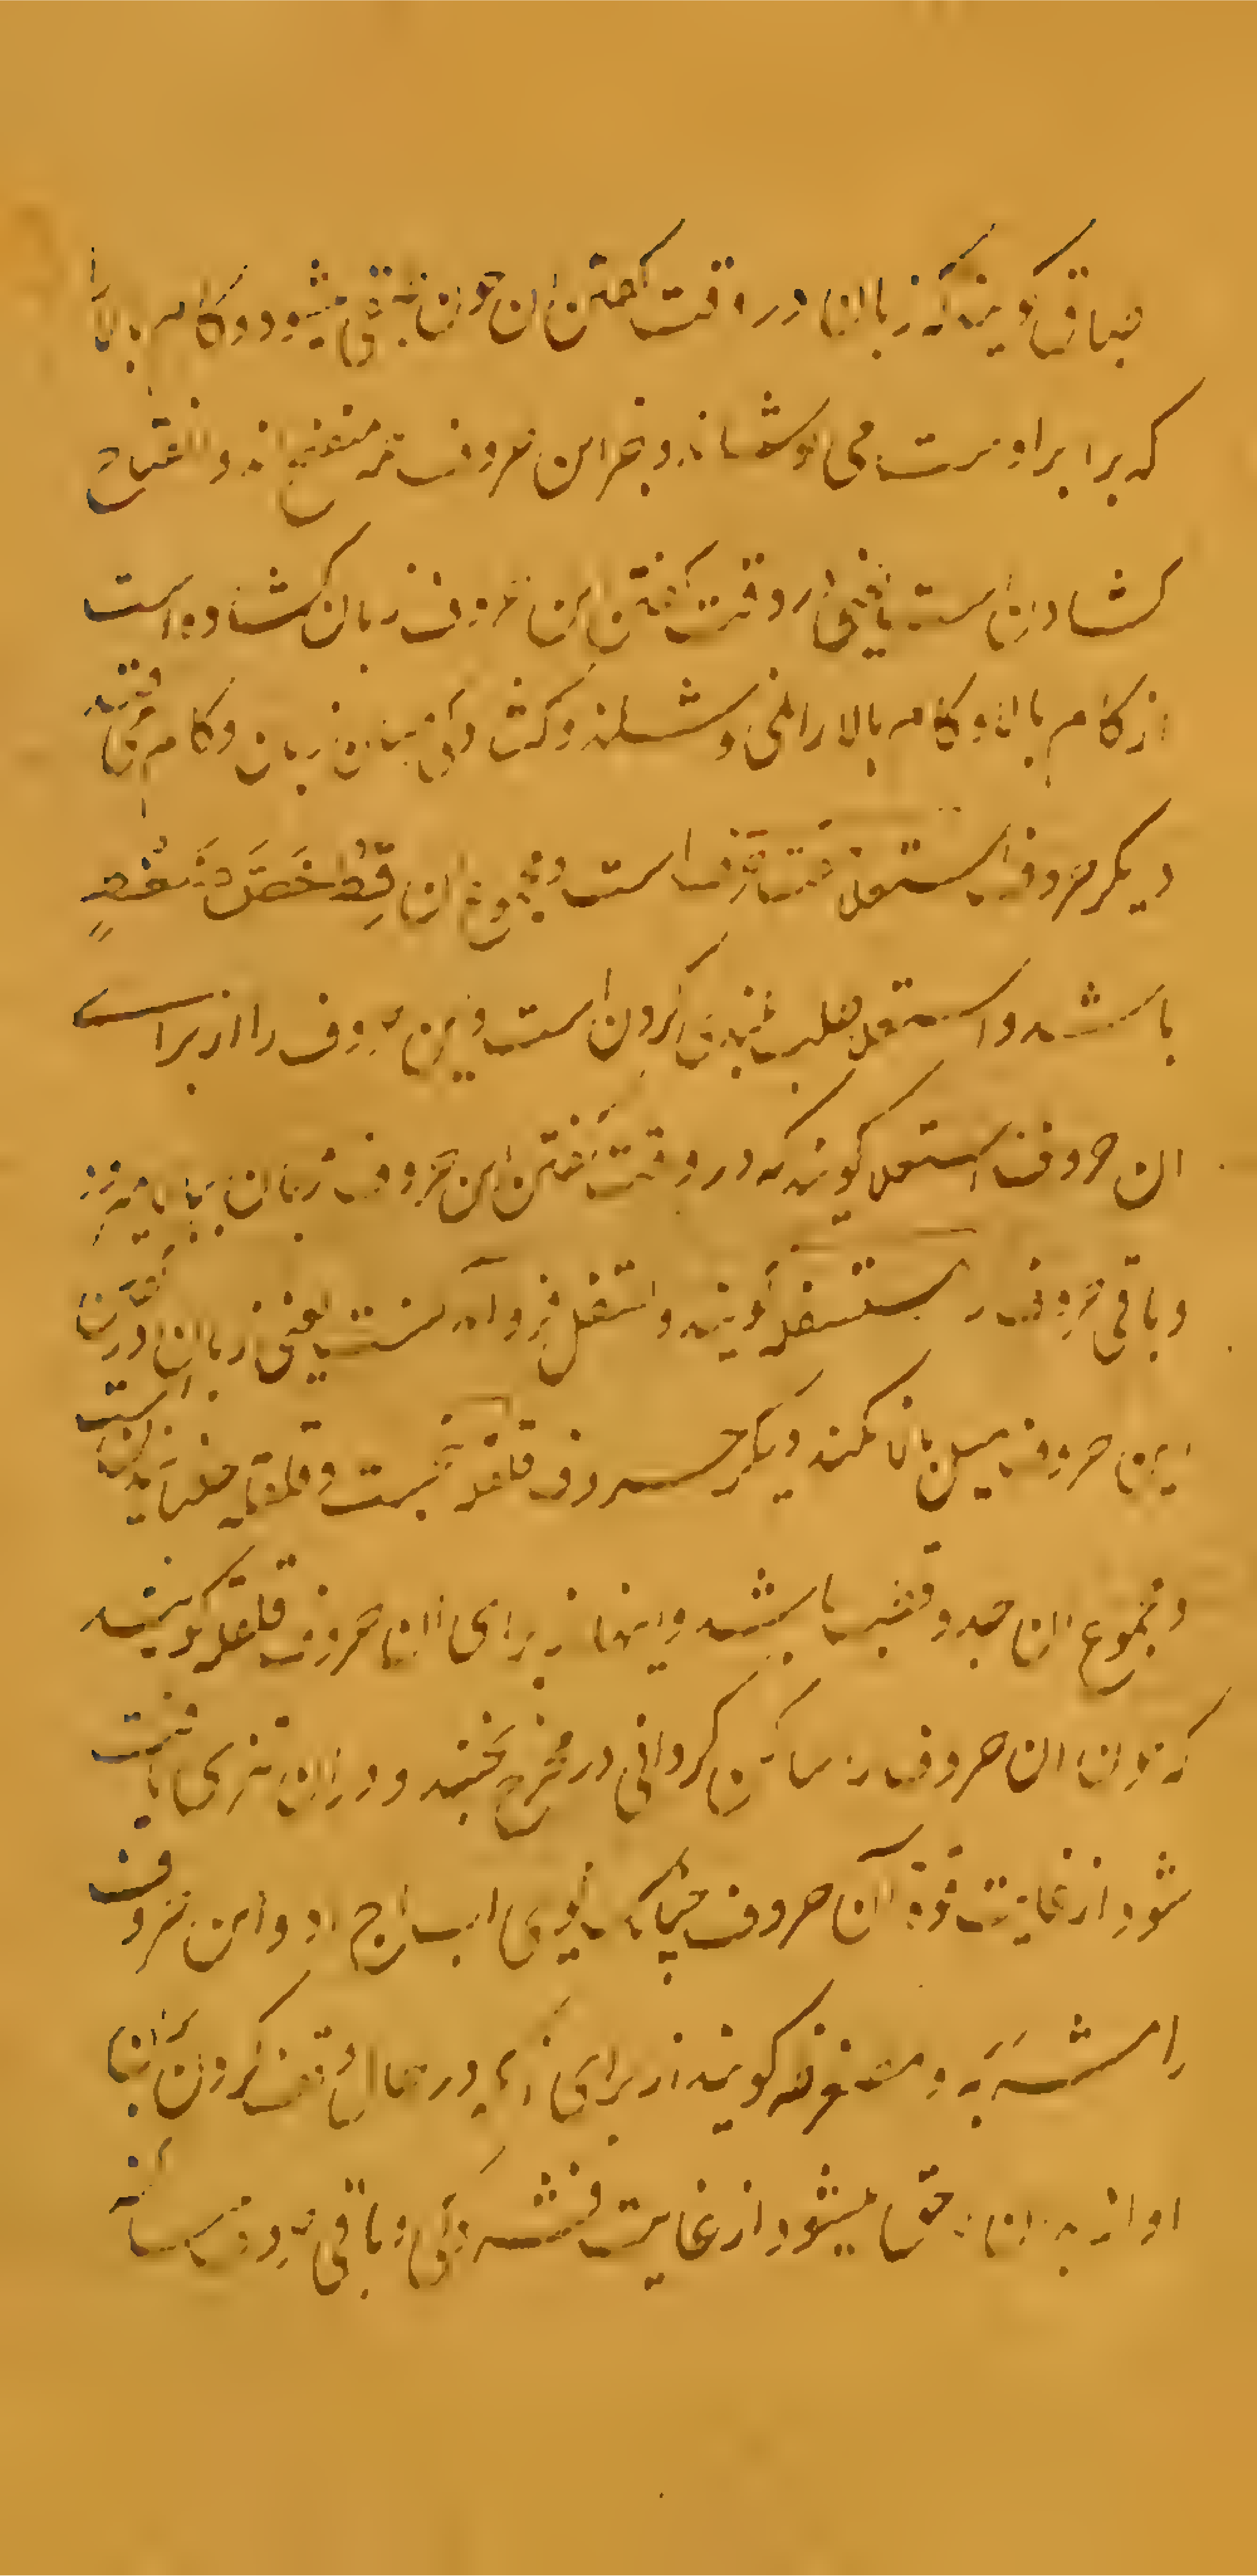 طباق گویند که زبان در وقت گفتن ان چون طبقی میشود و کام بالا را
که برابر اوست می پوشاند و بغیر این حروف همه منفتح اند و انفتاح
کشادن است یعنی در وقت گفتن این حروف زبان کشاده است
از کام بالا و کام بالا را نمی پوشاند و کشادگی میان زبان و کام
دیکر حروف استعلا هفت است و مجموع ان قظ خص ضغط
باشد و استعلا طلب بلندی کردن است و این حروف را از برای
ان حروف استعلا کویند که در وقت گفتن این حروف زبان ببالا میرود
و باقی حروف را مستفل گویند و استفال فرو آمدنست یعنی زبان در گفتن
این حروف میل ببالا نکند دیکر حروف قلقله پنجست و قلقله جنبانیدن است
و مجموع ان جد و قطب باشد و اینها از برای ان حروف قلقله کویند
که چون ان حروف را ساکن کردانی در مخرج بجنبد و در ان نبری یافت
شود از غایت قوة آن حروف چنانکه کوی اب اج اد و این حروف
را مشربه و مضغوطه کویند از برای آنکه در حال وقف کردن بر آنها
اواز به ان ملحق میشود از غایت فشردگی و باقی حروف ساکن